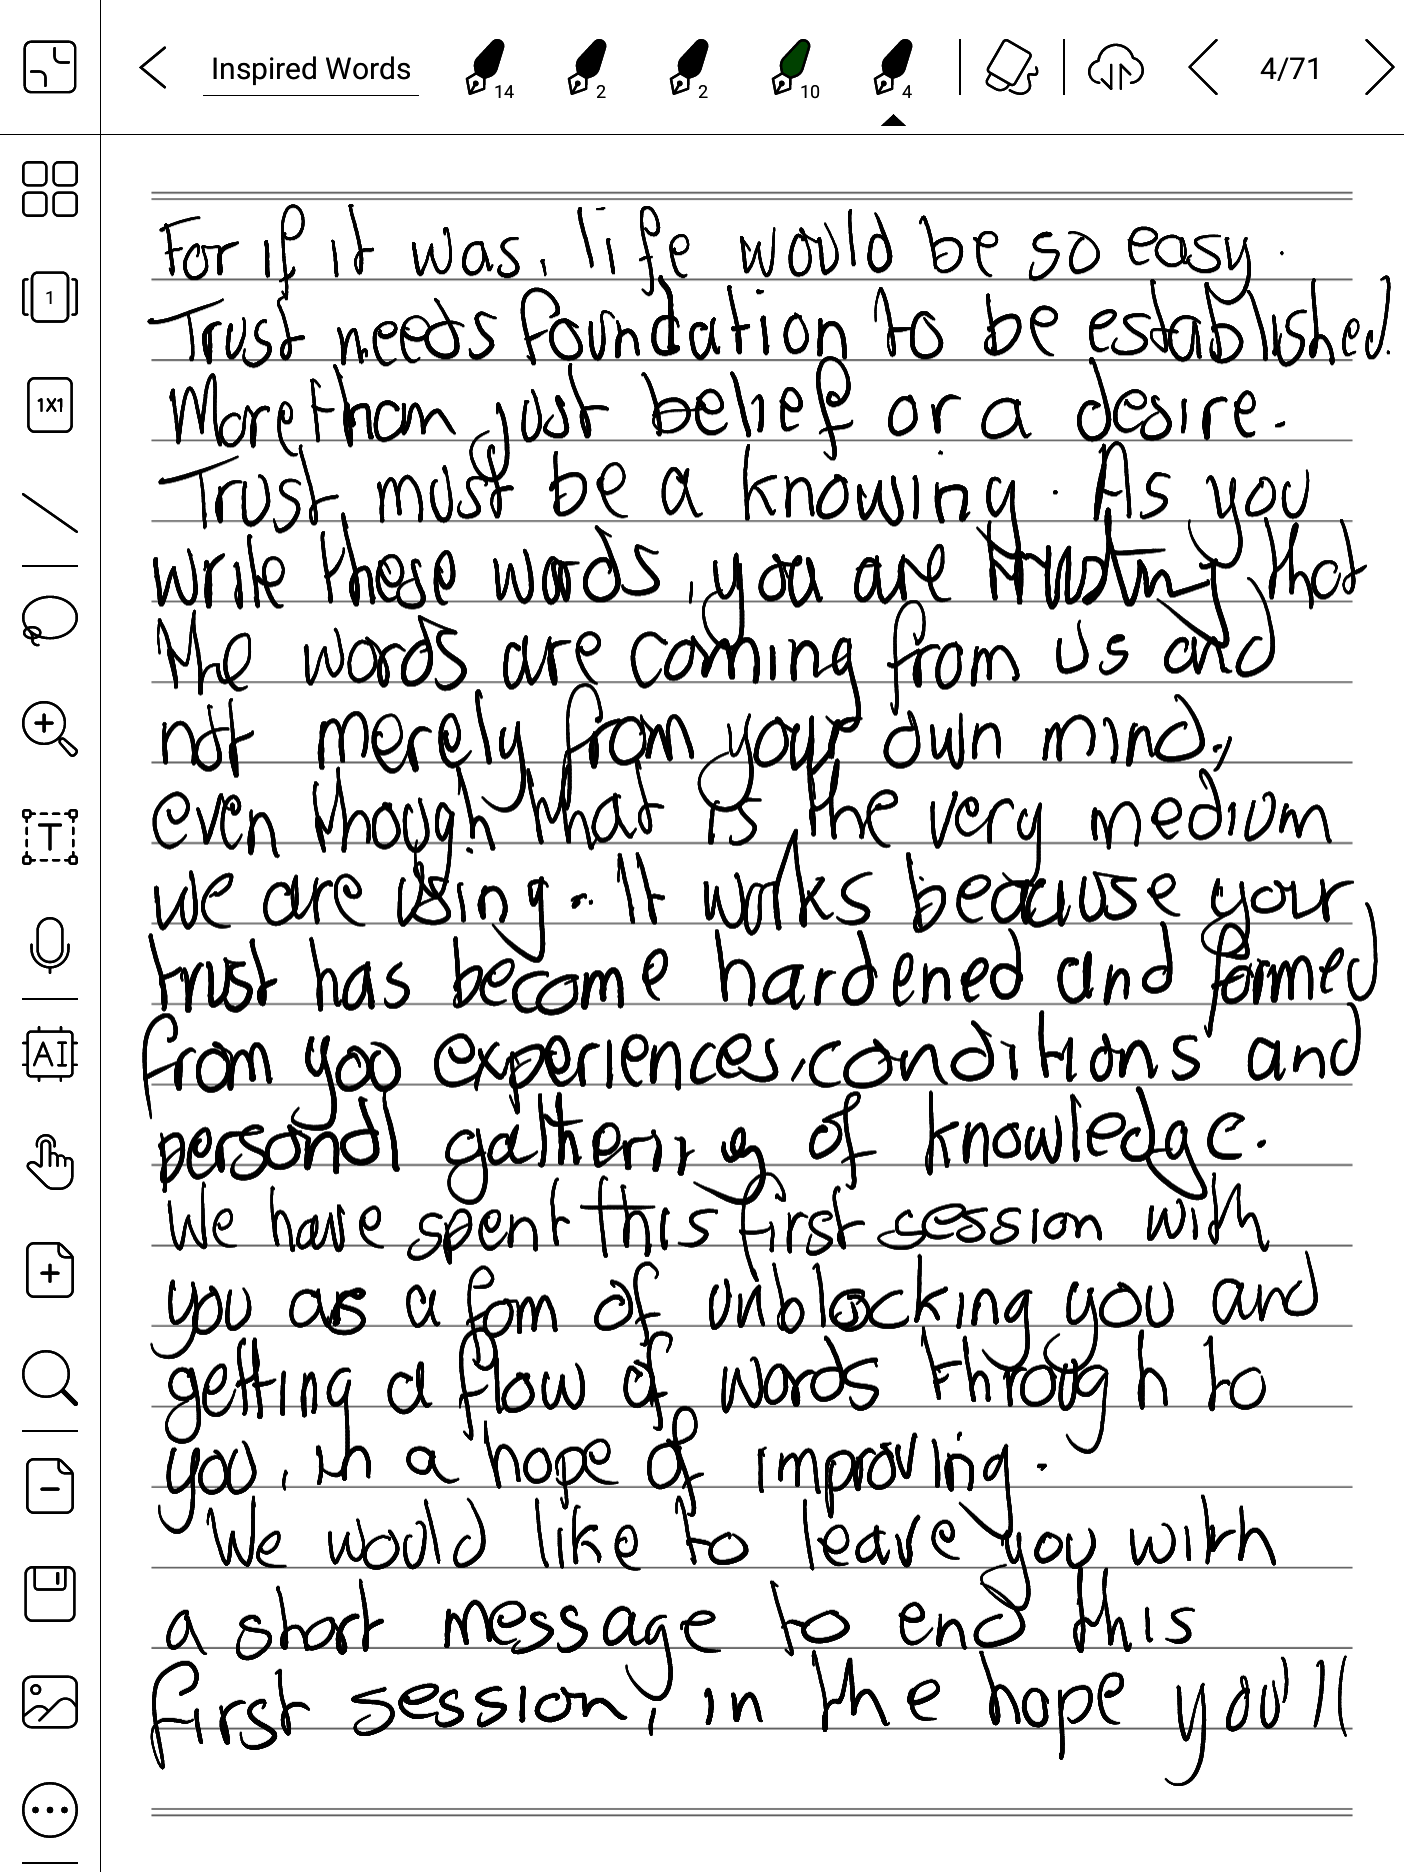 Inspired Words
14
2
2
10
4
4/71
1
1X1
T
AI
For if it was, life would be so easy.
Trust needs foundation to be established.
More than just belief or a desire.
Trust must be a knowing. As you
write these words, you are trusting that
the words are coming from us and
not merely from your own mind,
even though that is the very medium
we are using. It works because your
trust has become hardened and formed
from you experiences, conditions and
personal gathering of knowledge.
We have spent this first session with
you as a fom of unblocking you and
getting a flow of words through to
you, in a hope of improving.
We would like to leave you with
a short message to end this
first session, in the hope you'll